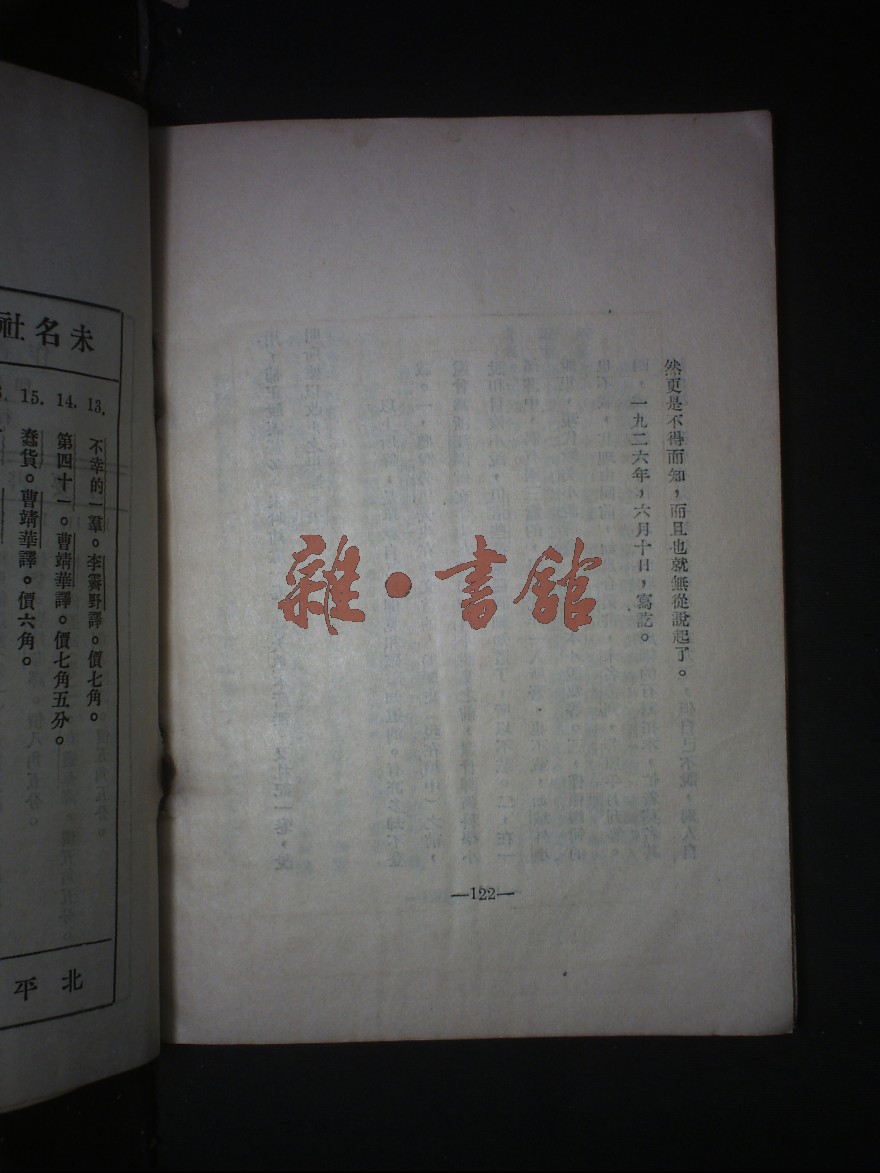 然更是不得而知，而且也就無從說起了。
一九二六年，六月十日，寫訖。
—122—
雜·書舘
未名社
13. 不幸的一羣。李霽野譯。價七角。
14. 第四十一。曹靖華譯。價七角五分。
15. 蠢貨。曹靖華譯。價六角。
北平